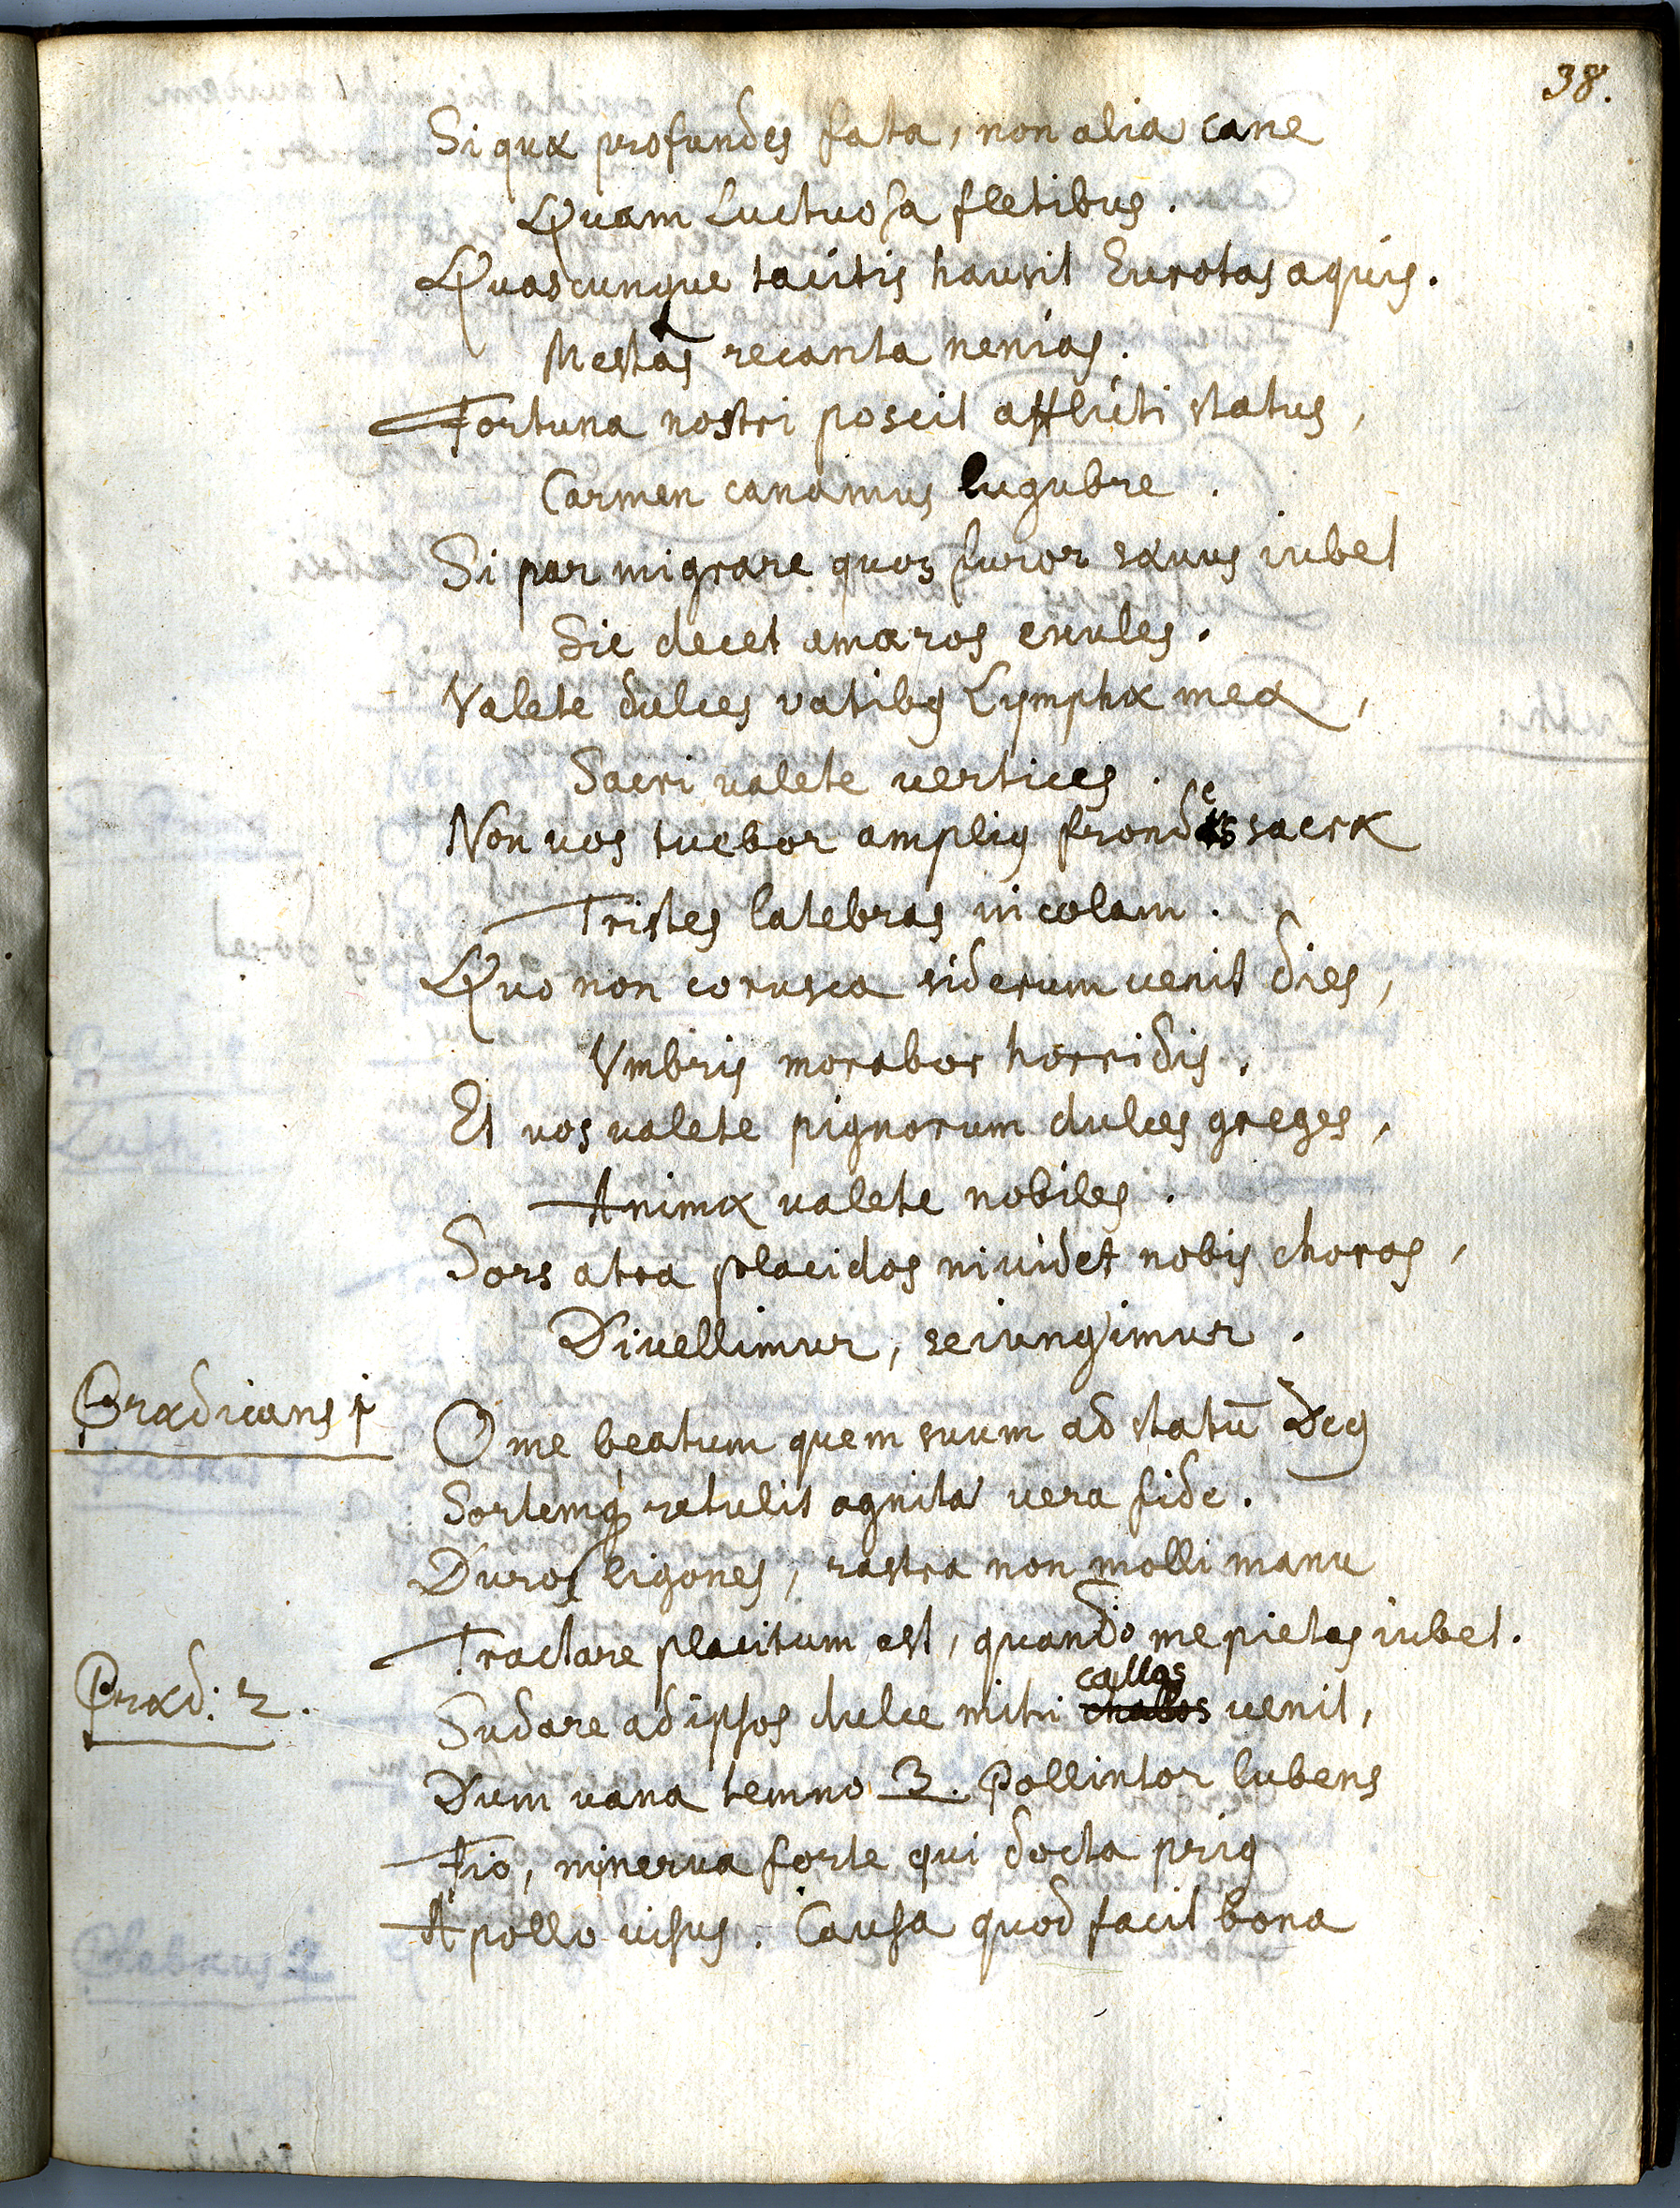 38.
Si quæ profundes fata, non alia cane
Quam Luctuosa fletibus.
Quascunque tacitis hausit Eurotas aquis.
Mestas recanta nenias.
Fortuna nostri poscit afflicti status,
Carmen canamus lugubre.
Si par migrare quos furor sævus iubet
Sic decet amaros exules.
Valete dulces vatibꝰ Lymphæ meæ,
Sacri valete vertices.
Non vos tuebor ampliꝰ frondes sacræ
Tristes latebras incolam.
Quo non corusca siderum venit dies,
Vmbris morabor horridis.
Et vos valete pignorum dulces greges,
Animæ valete nobiles.
Sors atra placidos invidet nobis choros,
Divellimur, seiungimur.
Prædicans j
O me beatum quem suum ad statū Deꝰ
Sortemq́ꝫ retulit agnita vera fide.
Duros ligones, rastra non molli manu
Tractare placitum est, quando me pietas iubet.
Præd: 2.
callos
Sudare ad ipsos dulce mihi challos venit,
Dum vana temno 3. Pollintor lubens
Fio, minerva forte qui docta priꝰ
Apollo visus. Causa quod facit bona